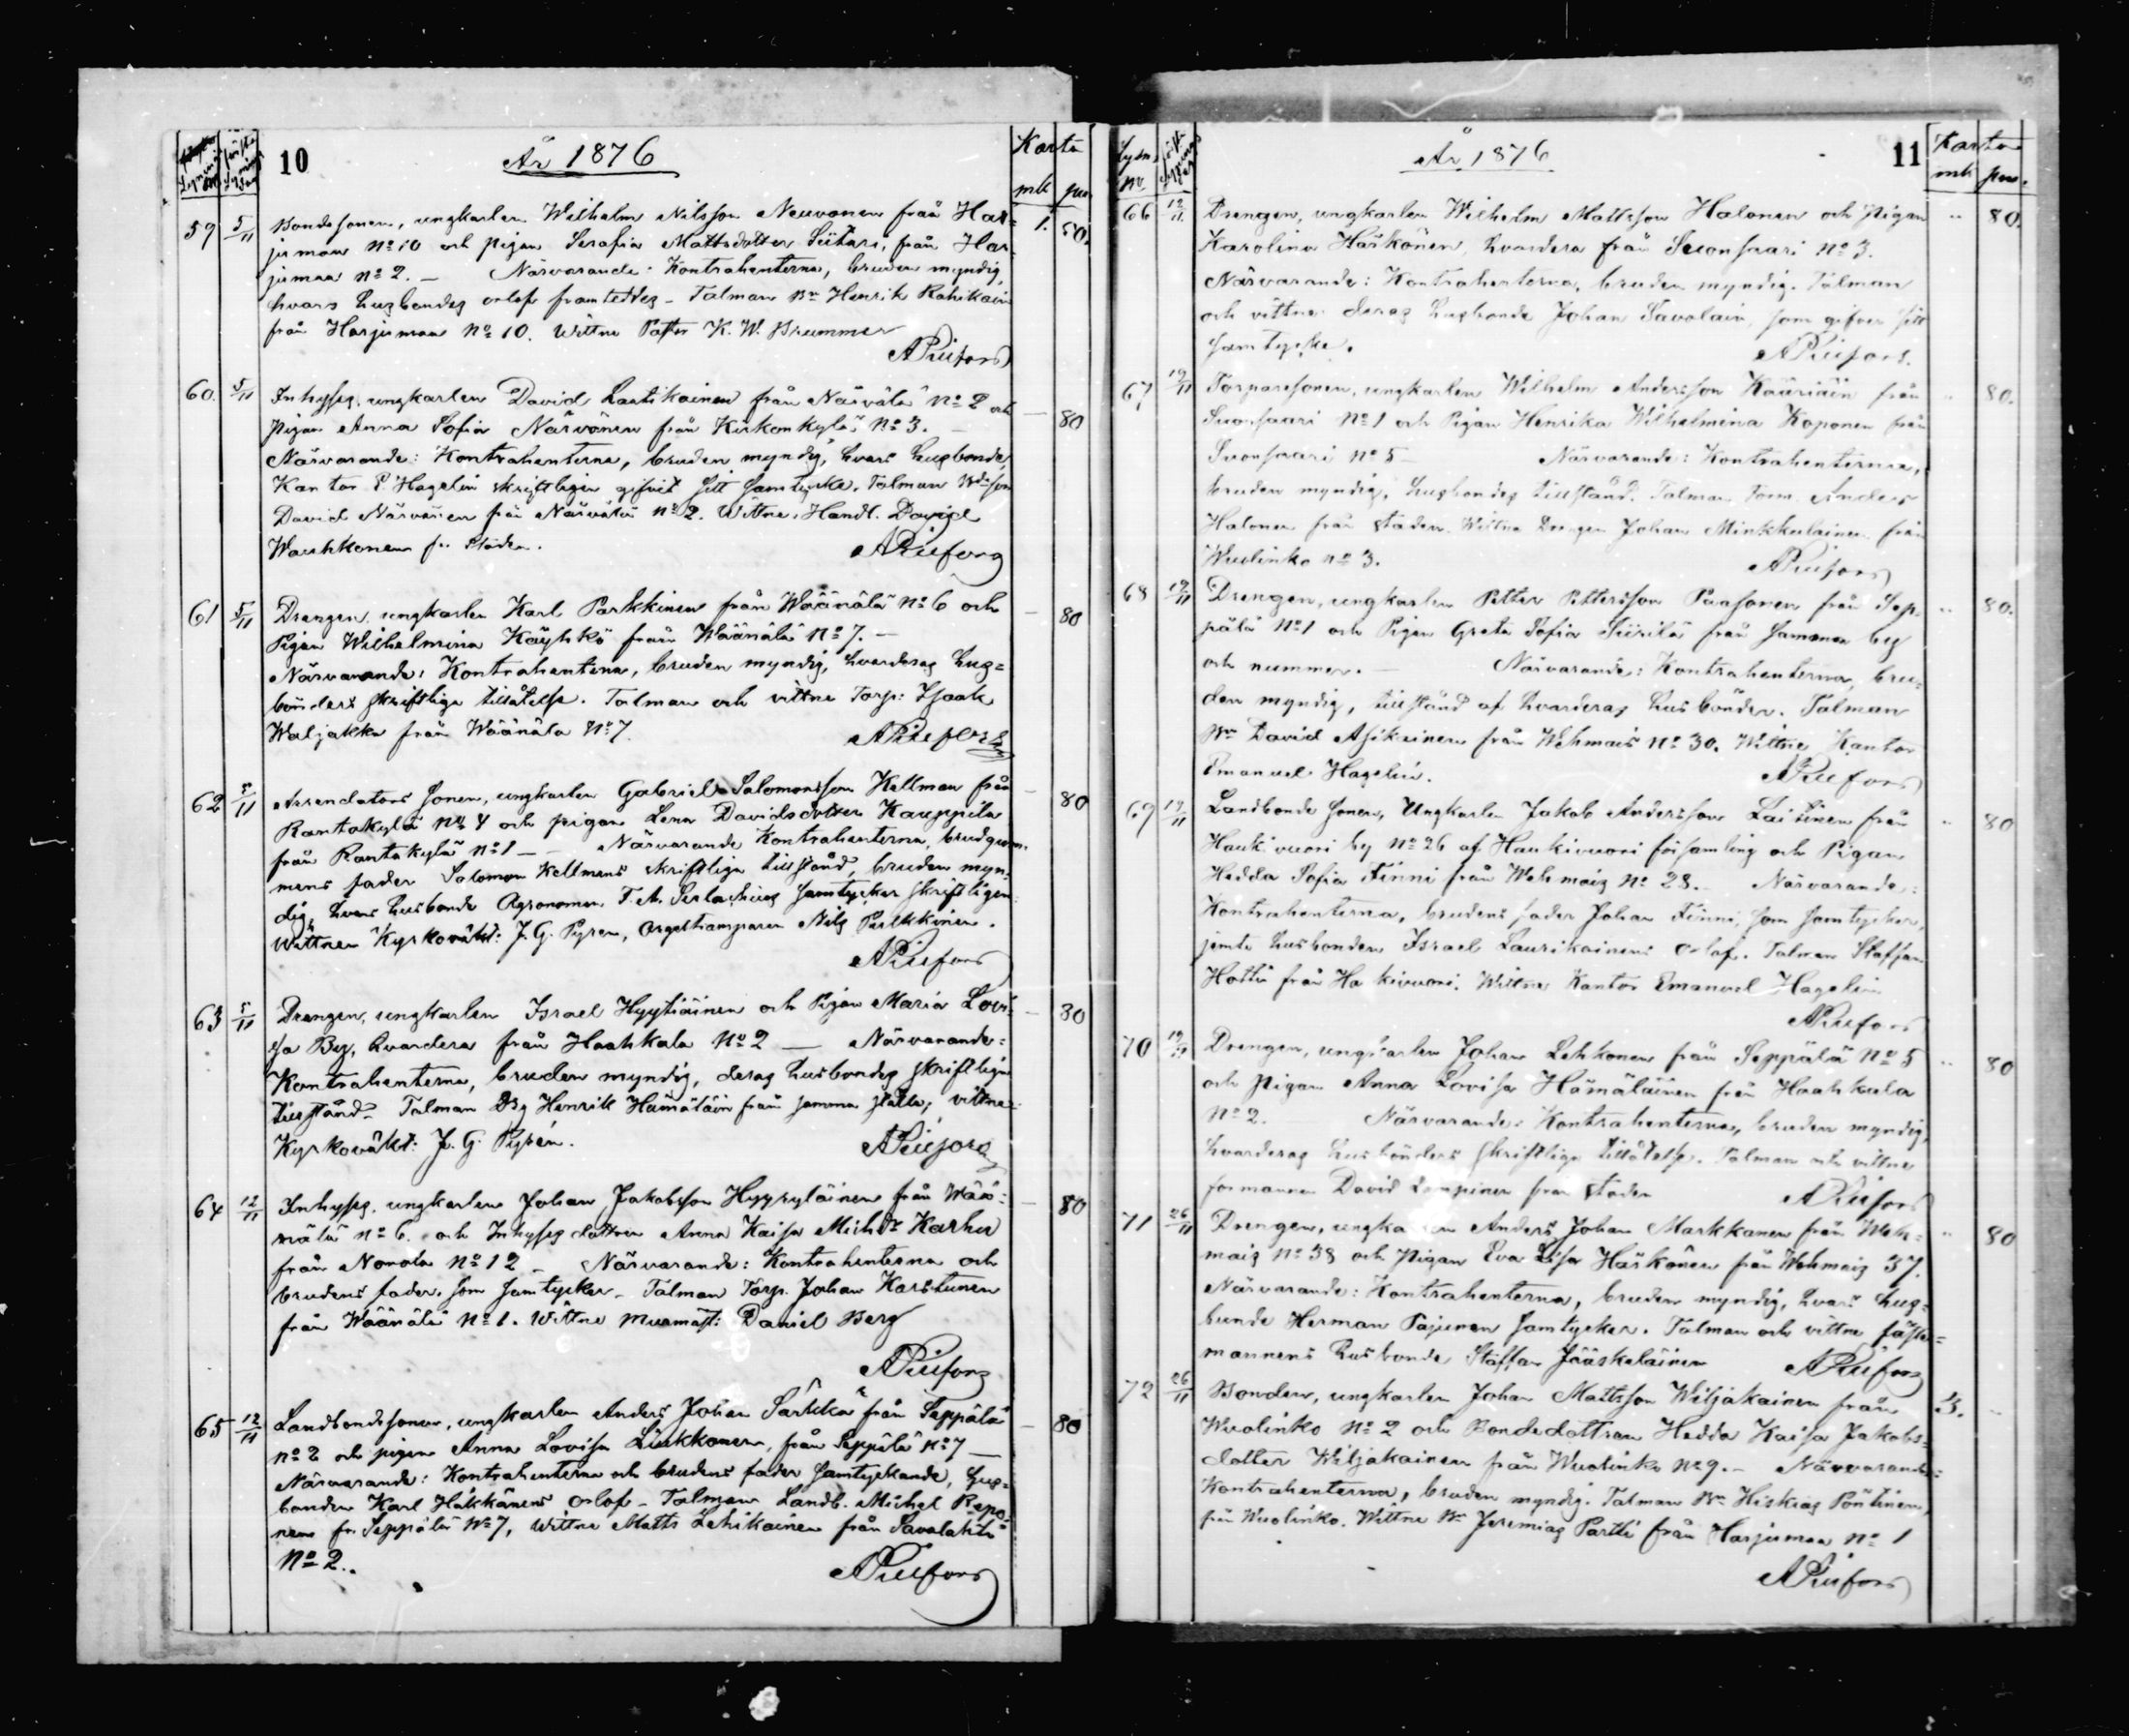 10
År 1876
Karta
mk pn.
59 5/11 Bondesonen, ungkarlen Wilhelm Nilsson Neuvonen från Har- 1. 50.
jumaa No 10 och pigan Serafia Mattsdotter Siitari, från Har-
jumaa No 2. — Närvarande: Kontrahenterna, bruden myndig,
hvars husbondes orlof framteddes - Talman Bn Henrik Rahikain
från Harjumaa No 10. Wittne Pastor K. W. Brummer
APiifors
60. 5/11 Inhyses, ungkarlen David Lautikainen från Närvälä No 2 och — 80
Pigan Anna Sofia Närvänen från Kirkonkylä No 3. —
Närvarande: Kontrahenterna, bruden myndig, hvars husbonde,
Kantor E. Hagelin skriftligen gifvit sitt samtycke. Talman
David Närvänen från Närvälä No 2. Wittne, Handl. David
Wauhkonen fr. Staden.
APiifors
61 5/11 Drengen, ungkarlen Karl Parkkinen från Wäänälä No 6 och — 80
Pigan Wilhelmina Käyhkö från Wäänälä No 7. —
Närvarande: Kontrahenterna, bruden myndig, hvarderas hus=
bönders skriftliga tillåtelse. Talman och vittne Torp: Isaak
Waljakka från Wäänälä No 7.
APiifors
62 5/11 Arrendators sonen, ungkarlen Gabriel Salomonsson Kellman från — 80
Rantakylä No 4 och pigan Lena Davidsdotter Kauppila
från Rantakylä No 1 — Närvarande Kontrahenterna, brudgum-
mens fader Salomon Kellmans skriftliga tillstånd, bruden myn-
dig, hvars husbonde Agronomen F. A. Serlachius samtycker skriftligen.
Wittnen Kyrkoväkt: J. G. Pyren, Orgeltramparen Nils Parkkinen.
APiifors
63 5/11 Drengen, ungkarlen Israel Hyytiäinen och Pigan Maria Lovi- — 80
sa By, hvardera från Haahkala No 2 — Närvarande:
Kontrahenterna, bruden myndig, deras husbondes skriftliga
tillstånd. Talman Henrik Hämäläin från samma ställe, vittne:
Kyrkoväkt: J. G. Pyrén.
APiifors
64 12/11 Inhyses, ungkarlen Johan Jakobsson Hyyryläinen från Wää- — 80
nälä No 6. och Inhyses dottren Anna Kaisa Michdr Karhu
från Norola No 12 — Närvarande: Kontrahenterna och
brudens fader, som samtycker — Talman Torp. Johan Karstunen
från Wäänälä No 1. Wittne Murmäst: Daniel Berg
APiifors
65 12/11 Landbondsonen, ungkarlen Anders Johan Särkkä från Seppälä — 80
No 2 och pigan Anna Lovisa Liukkonen, från Seppälä No 7 —
Närvarande: Kontrahenterna och brudens fader samtyckande, hus-
bonden Karl Häkkänens orlof — Talman Landb. Michel Repo-
nen fr. Seppälä No 7, Wittne Matts Lehikainen från Savolahti
No 2.
APiifors
Lysn. No
År 1876
11
Karta
mk pn.
66 12/11 Drengen, ungkarlen Wilhelm Mattsson Halonen och pigan " 80.
Karolina Härkönen, hvardera från Suonsaari No 3.
Närvarande: Kontrahenterna, bruden myndig. Talman
och vittne deras husbonde Johan Savolain, som gifver sitt
samtycke.
APiifors.
67 19/11 Torparesonen, ungkarlen Wilhelm Andersson Kääriäin från " 80.
Suonsaari No 1 och Pigan Henrika Wilhelmina Koponen från
Suonsaari No 5 — Närvarande: Kontrahenterna,
bruden myndig, husbondes tillstånd. Talman Form. Anders
Halonen från staden. Wittne Drengen Johan Minkkulainen från
Wuolinko No 3.
APiifors
68 19/11 Drengen, ungkarlen Petter Pettersson Paasonen från Sep- " 80.
pälä No 1 och Pigan Greta Sofia Siirilä från samma by
och nummer. — Närvarande: Kontrahenterna, bru-
den myndig, tillstånd af hvarderas husbönder. Talman
Bn David Asikainen från Wehmais No 30. Wittne Kantor
Emanuel Hagelin.
APiifors
69 19/11 Landbonde sonen, Ungkarlen Jakob Andersson Laitinen från " 80
Haukivuori by No 26 af Haukivuori församling och Pigan
Hedda Sofia Finni från Wehmais No 28. — Närvarande:
Kontrahenterna, brudens fader Johan Finni, som samtycker,
jemte husbonden Israel Laurikainens orlof. Talman Staffan
Hotti från Haukivuori. Wittne Kantor Emanuel Hagelin
APiifors
70 19/11 Drengen, ungkarlen Johan Lehkonen från Seppälä No 5 " 80
och pigan Anna Lovisa Hämäläinen från Haahkala
No 2. Närvarande: Kontrahenterna, bruden myndig,
hvarderas husbönders skriftliga tillåtelse. Talman och vittne
formannen David Lampinen från staden
APiifors
71 26/11 Drengen, ungkarlen Anders Johan Markkanen från Weh- " 80
mais No 38 och pigan Eva Lisa Härkönen från Wehmais 37.
Närvarande: Kontrahenterna, bruden myndig, hvars hus-
bonde Herman Pajunen samtycker. Talman och vittne fäste-
mannens husbonde Staffan Jääskeläinen
APiifors
72 26/11 Bonden, ungkarlen Johan Mattsson Wiljakainen från 3. —
Wuolinko No 2 och Bondedottren Hedda Kaisa Jakobs-
dotter Wiljakainen från Wuolinko No 9. — Närvarande:
Kontrahenterna, bruden myndig. Talman Bn Hiskias Pöntinen,
från Wuolinko. Wittne Bn Jeremias Partti från Harjumaa No 1
APiifors